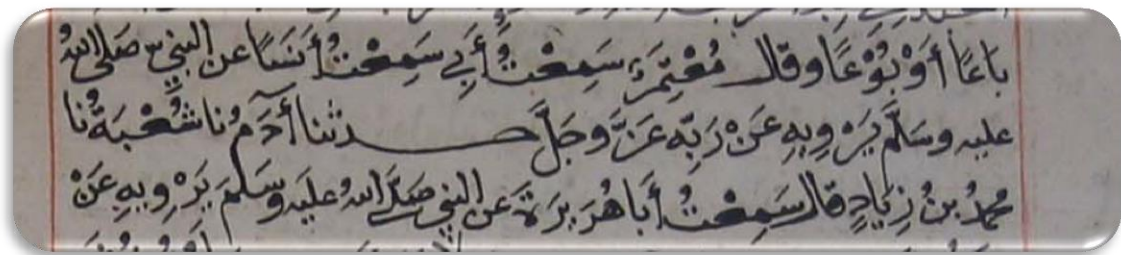 بَاعًا أَوْ بُوْعًا وقال مُعْتَمِرٌ سَمِعْتُ أَبِي سَمِعْتُ أَنَسًا عن النبي صَلى اللهُ
عليه وسَلَّم يَرْوِيهِ عَنْ رَبِّهِ عَزَّ وجَلَّ حدثنا أَدَمُ نا شُعْبَةُ نا
محمدُ بنُ زِيَادٍ قال سَمِعْتُ أَبَا هُرَيرَةَ عن النبي صَلَّى اللهُ عليه وسَلمَ يَرْوِيهِ عَنْ